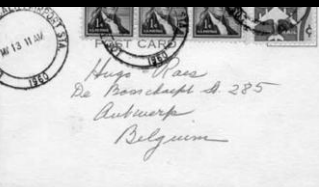 MAY 13 11 AM
1960
1960
POST CARD
Hugo Raes
De Bosschaert St. 285
Antwerp
Belgium